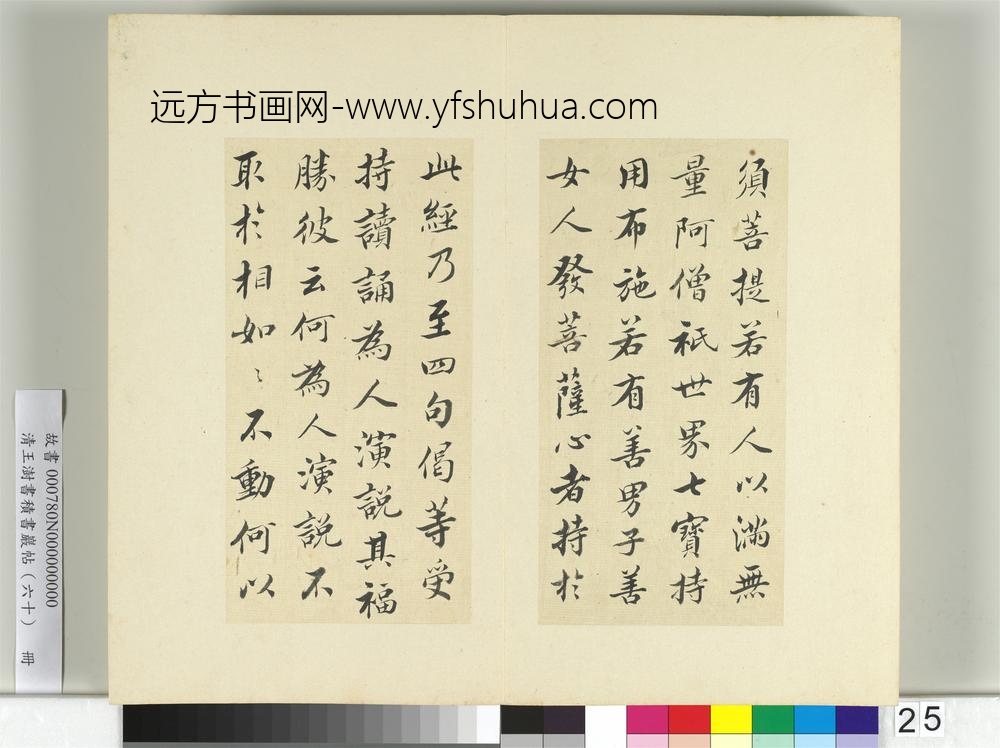 远方书画网-www.yfshuhua.com
須菩提若有人以滿無
量阿僧祇世界七寶持
用布施若有善男子善
女人發菩薩心者持於
此經乃至四句偈等受
持讀誦為人演説其福
勝彼云何為人演説不
取於相如〻不動何以
故書000780N000000000
清王澍書積書巖帖（六十） 冊
25